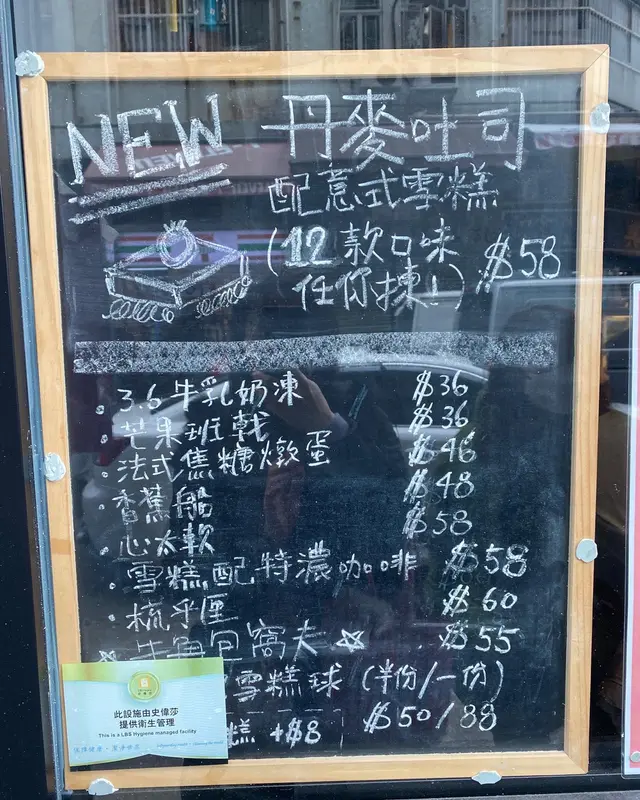 NEW 丹麥吐司
配意式雪糕
(12款口味
任你揀!) $58
• 3.6牛乳奶凍 $36
• 芒果班戟 $36
• 法式焦糖燉蛋 $46
• 香蕉船 $48
• 心太軟 $58
• 雪糕配特濃咖啡 $58
• 梳乎厘 $60
牛角包窩夫☆ $55
雪糕球 (半份/一份)
糕 +$8 $50/88
此設施由史偉莎
提供衛生管理
This is a LBS Hygiene managed facility